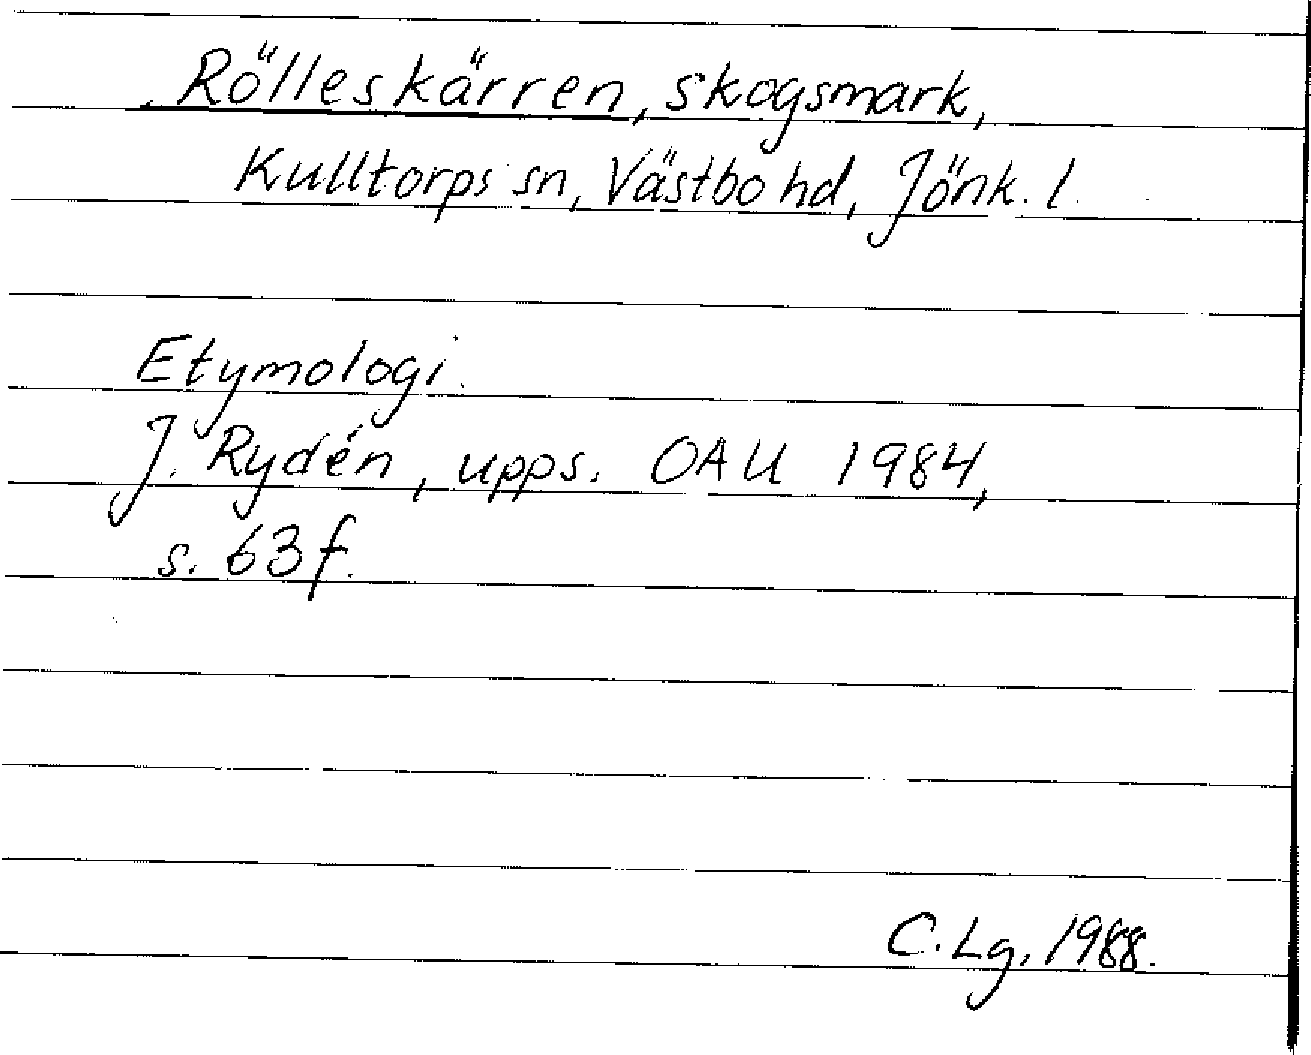 Rölleskärren, skogsmark,
Kulltorps sn, Västbo hd, Jönk. l.
Etymologi.
J. Rydén, upps. OAU 1984,
s. 63 f.
C. Lg, 1988.